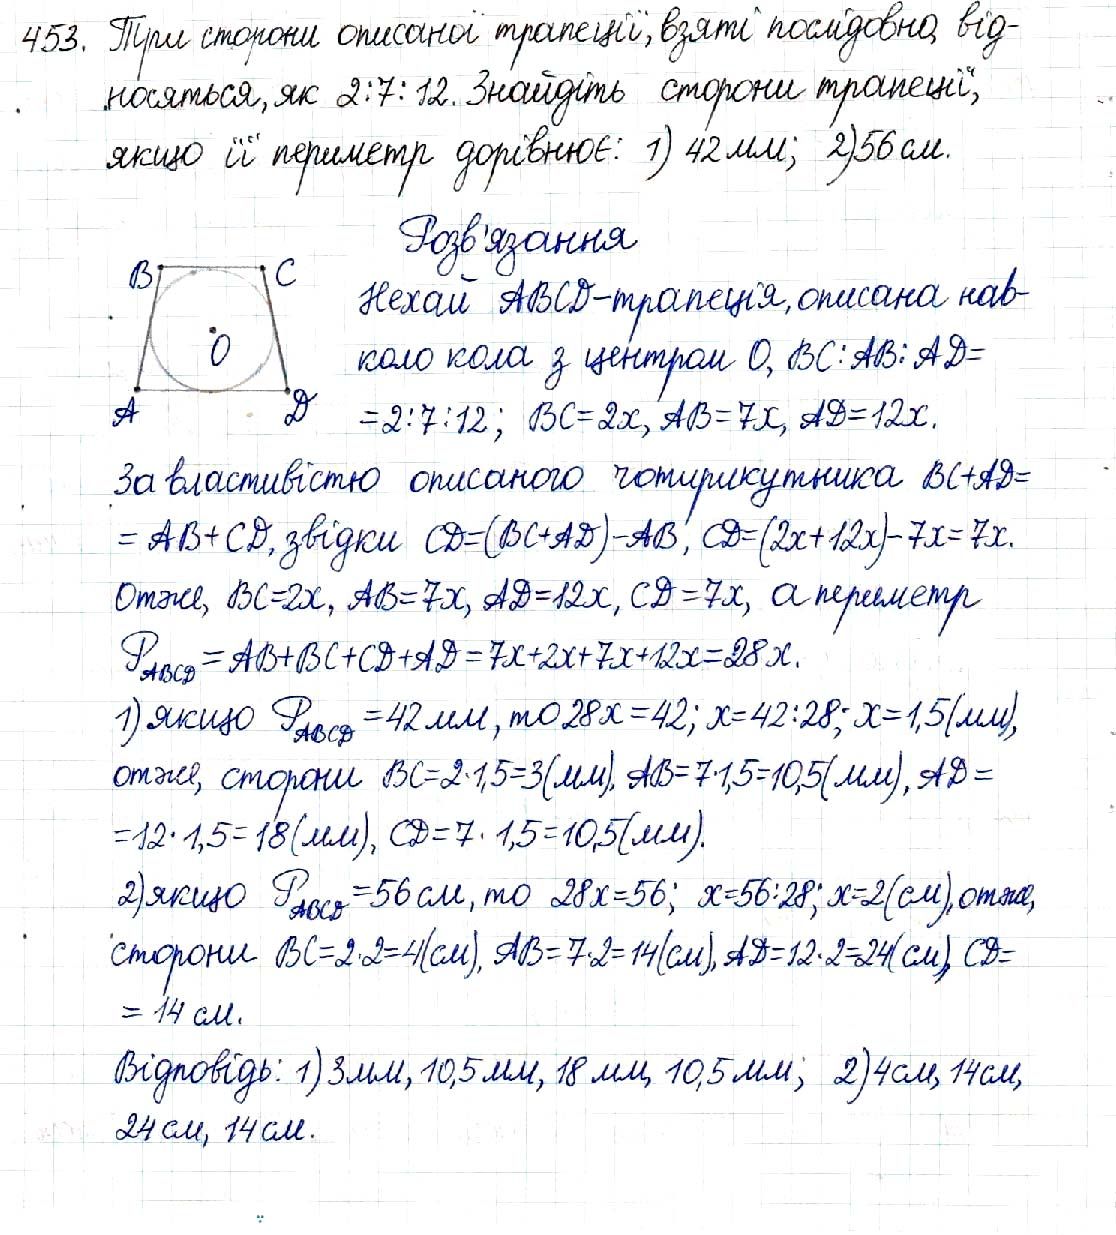 453. Три сторони описаної трапеції, взяті послідовно, від-
носяться, як 2:7:12. Знайдіть сторони трапеції,
якщо її периметр дорівнює: 1) 42 мм; 2) 56 см.
Розв'язання
B C
O
A D
Нехай ABCD-трапеція, описана нав-
коло кола з центром O, BC:AB:AD=
=2:7:12; BC=2x, AB=7x, AD=12x.
За властивістю описаного чотирикутника BC+AD=
=AB+CD, звідки CD=(BC+AD)-AB, CD=(2x+12x)-7x=7x.
Отже, BC=2x, AB=7x, AD=12x, CD=7x, а периметр
P_ABCD=AB+BC+CD+AD=7x+2x+7x+12x=28x.
1) якщо P_ABCD=42 мм, то 28x=42; x=42:28; x=1,5(мм),
отже, сторони BC=2·1,5=3(мм), AB=7·1,5=10,5(мм), AD=
=12·1,5=18(мм), CD=7·1,5=10,5(мм).
2) якщо P_ABCD=56 см, то 28x=56; x=56:28; x=2(см), отже,
сторони BC=2·2=4(см), AB=7·2=14(см), AD=12·2=24(см), CD=
=14 см.
Відповідь: 1) 3 мм, 10,5 мм, 18 мм, 10,5 мм; 2) 4 см, 14 см,
24 см, 14 см.